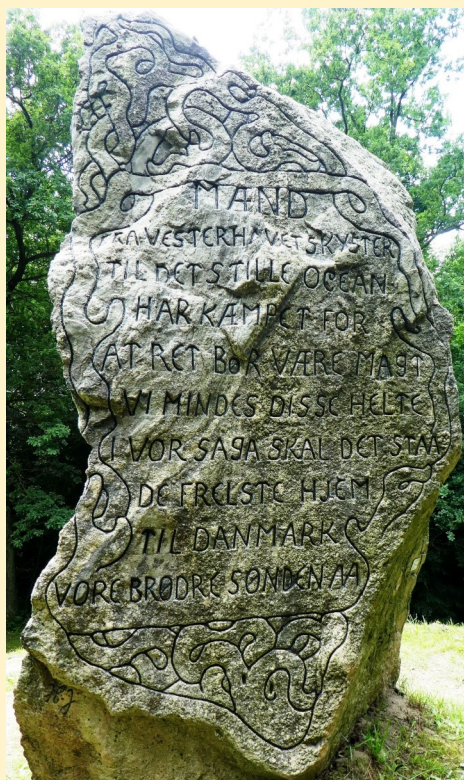 MÆND
FRA VESTERHAVETS KYSTER
TIL DET STILLE OCEAN
HAR KÆMPET FOR
AT RET BØR VÆRE MAGT
VI MINDES DISSE HELTE
I VOR SAGA SKAL DET STAA
DE FRELSTE HJEM
TIL DANMARK
VORE BRØDRE SØNDEN AA